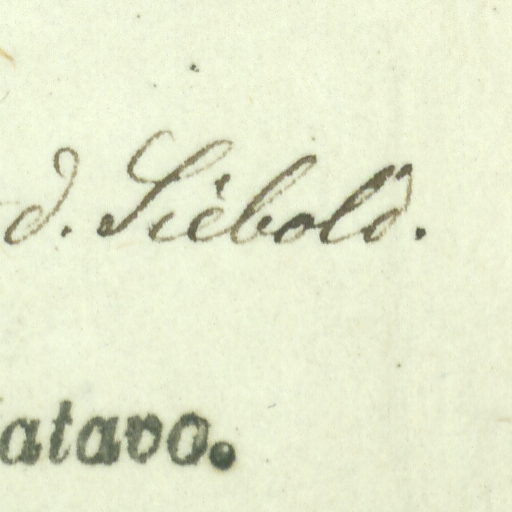 d. Siebold.
atavo.